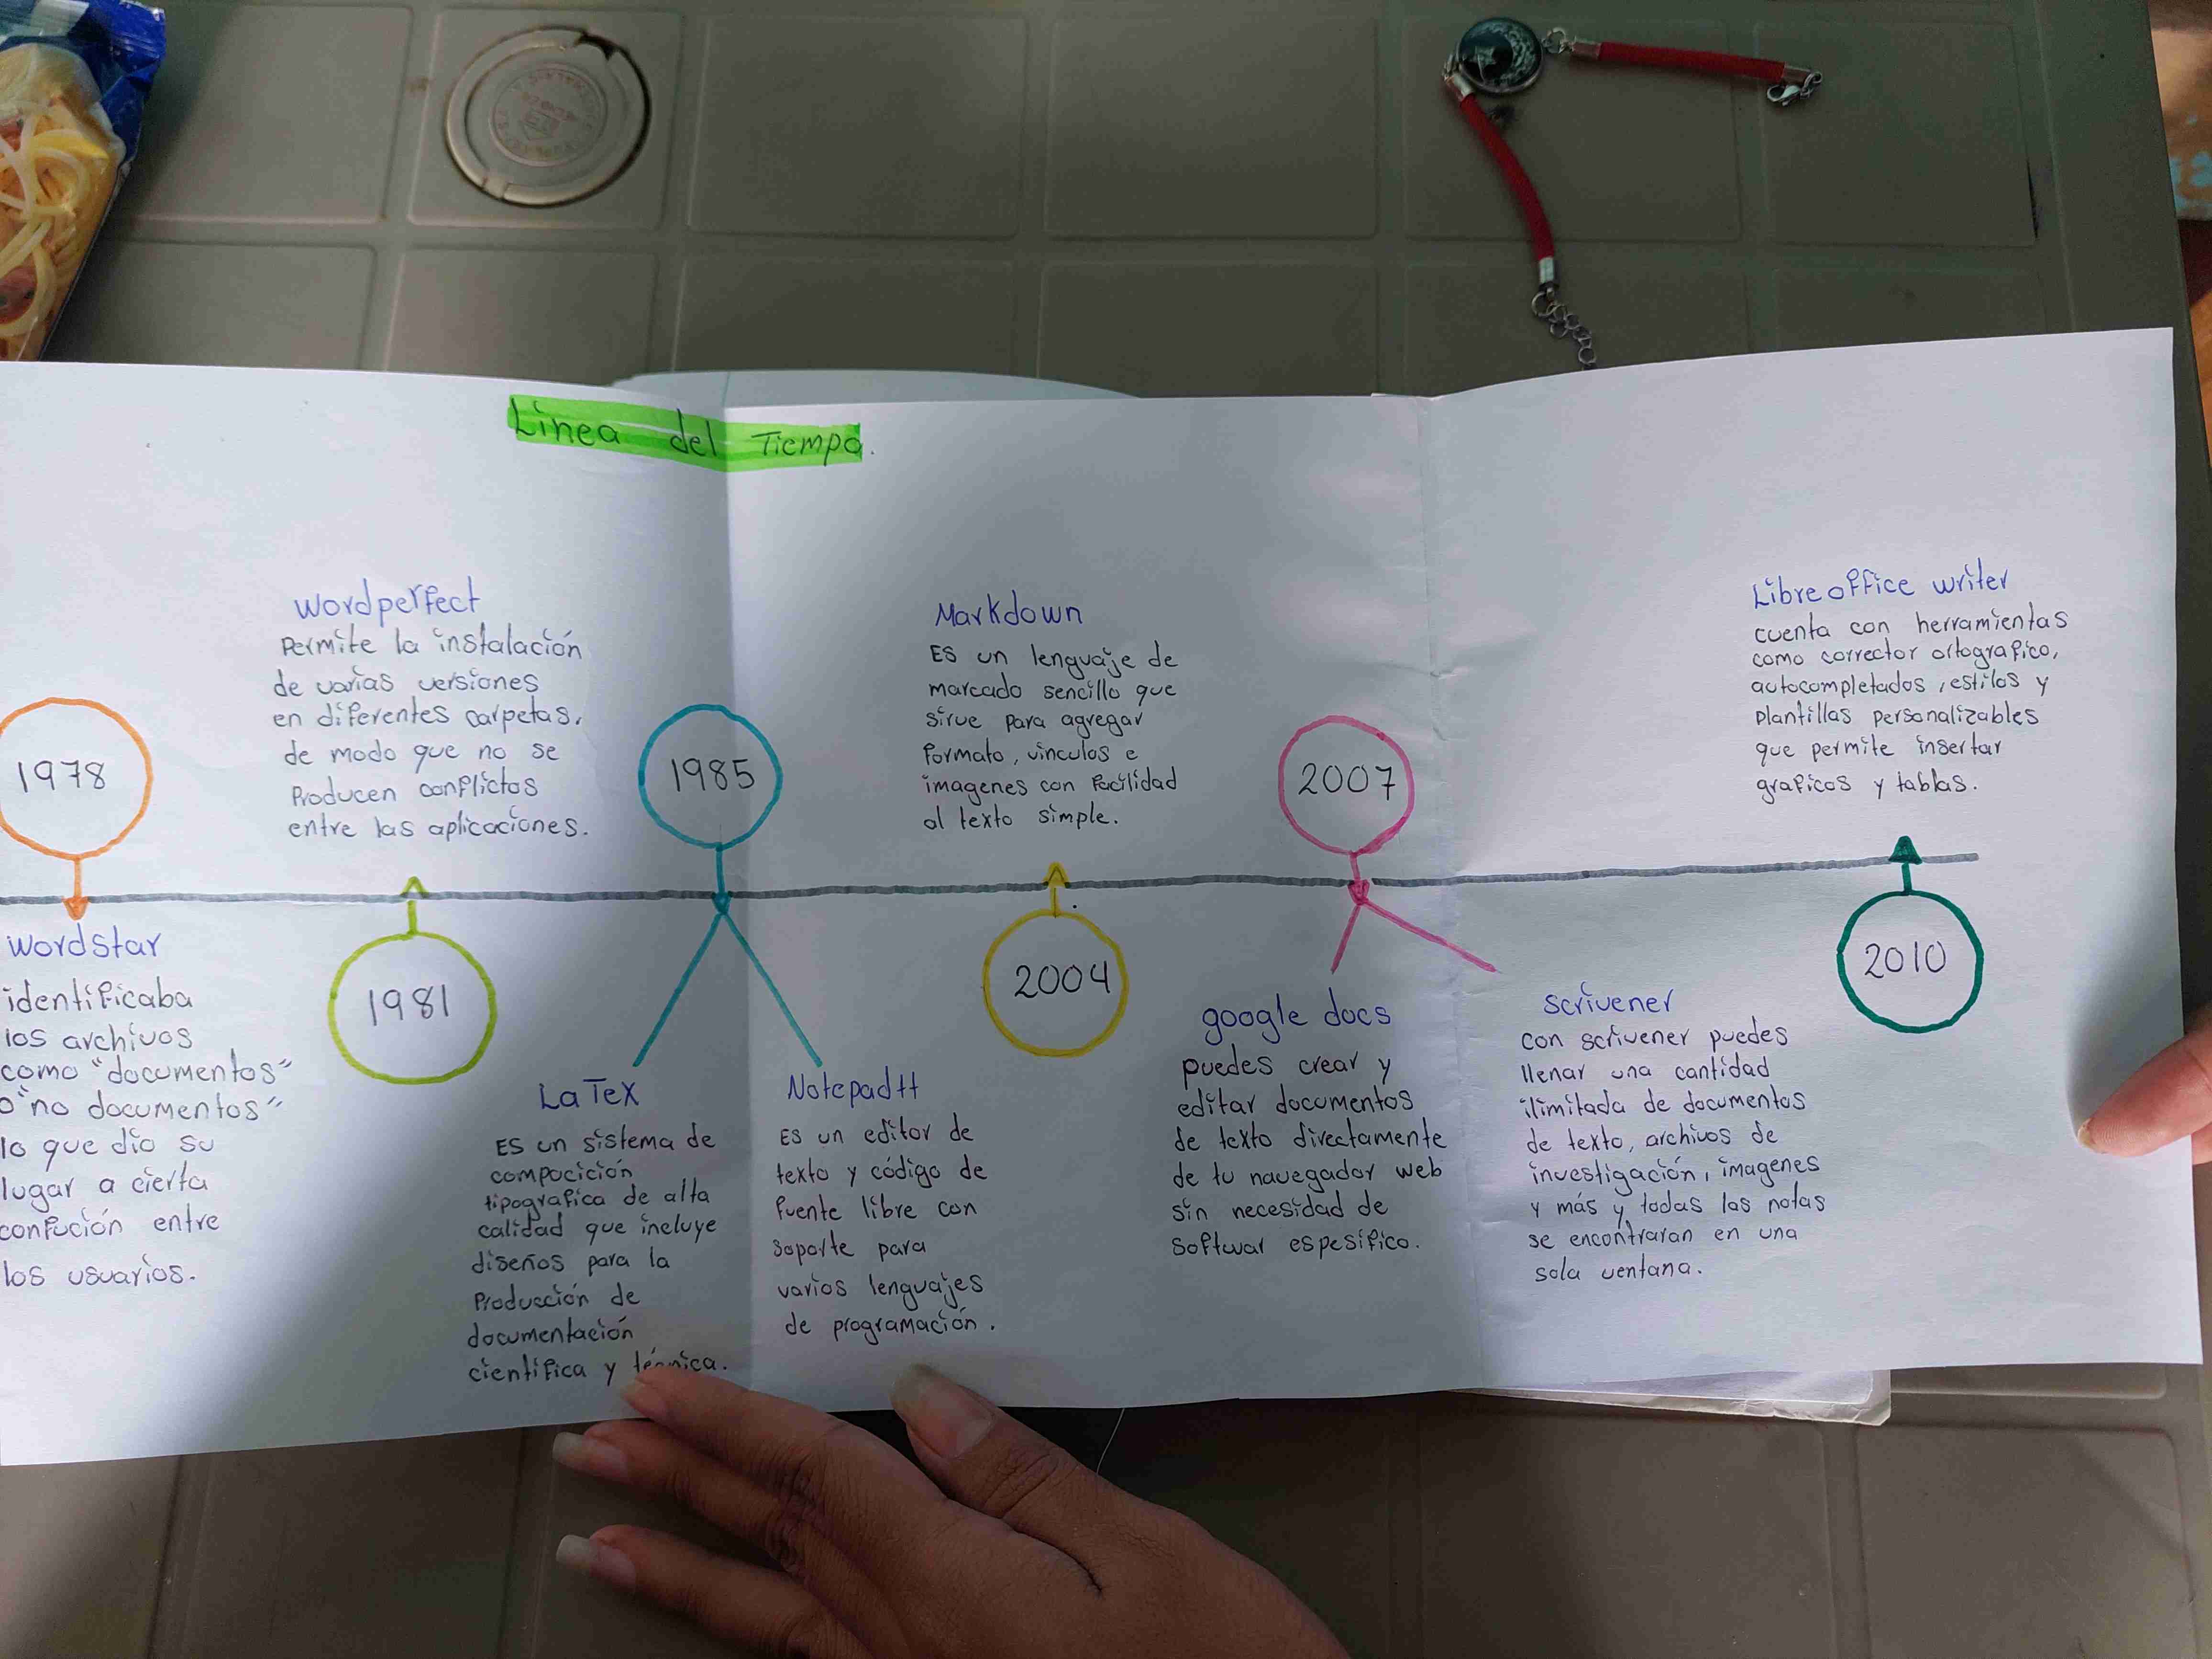 Linea del Tiempo.
1978
wordstar
identificaba
los archivos
como "documentos"
o "no documentos"
lo que dio su
lugar a cierta
confución entre
los usuarios.
wordperfect
Permite la instalación
de varias versiones
en diferentes carpetas,
de modo que no se
Producen conflictos
entre las aplicaciones.
1981
1985
LaTex
ES un sistema de
compocición
tipografica de alta
calidad que incluye
diseños para la
Producción de
documentación
científica y técnica.
Notepad++
ES un editor de
texto y código de
fuente libre con
soporte para
varios lenguajes
de programación.
Markdown
ES un lenguaje de
marcado sencillo que
sirve para agregar
formato, vinculos e
imagenes con facilidad
al texto simple.
2004
2007
google docs
puedes crear y
editar documentos
de texto directamente
de tu navegador web
sin necesidad de
softwar espesífico.
scrivener
con scrivener puedes
llenar una cantidad
ilimitada de documentos
de texto, archivos de
investigación, imagenes
y más y todas las notas
se encontraran en una
sola ventana.
Libreoffice writer
cuenta con herramientas
como corrector ortografico,
autocompletados, estilos y
plantillas personalizables
que permite insertar
graficos y tablas.
2010